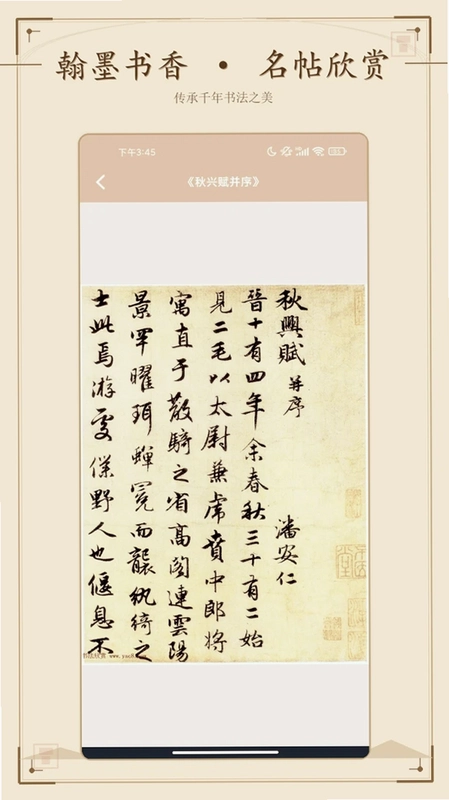 翰墨书香 • 名帖欣赏
传承千年书法之美
下午3:45
《秋兴赋并序》
秋興賦 并序 潘安仁
晉十有四年余春秋三十有二始
見二毛以太尉兼虎賁中郎將
寓直于散騎之省高閣連雲陽
景罕曜珥蟬冕而襲紈綺之
士此焉游處僕野人也偃息不